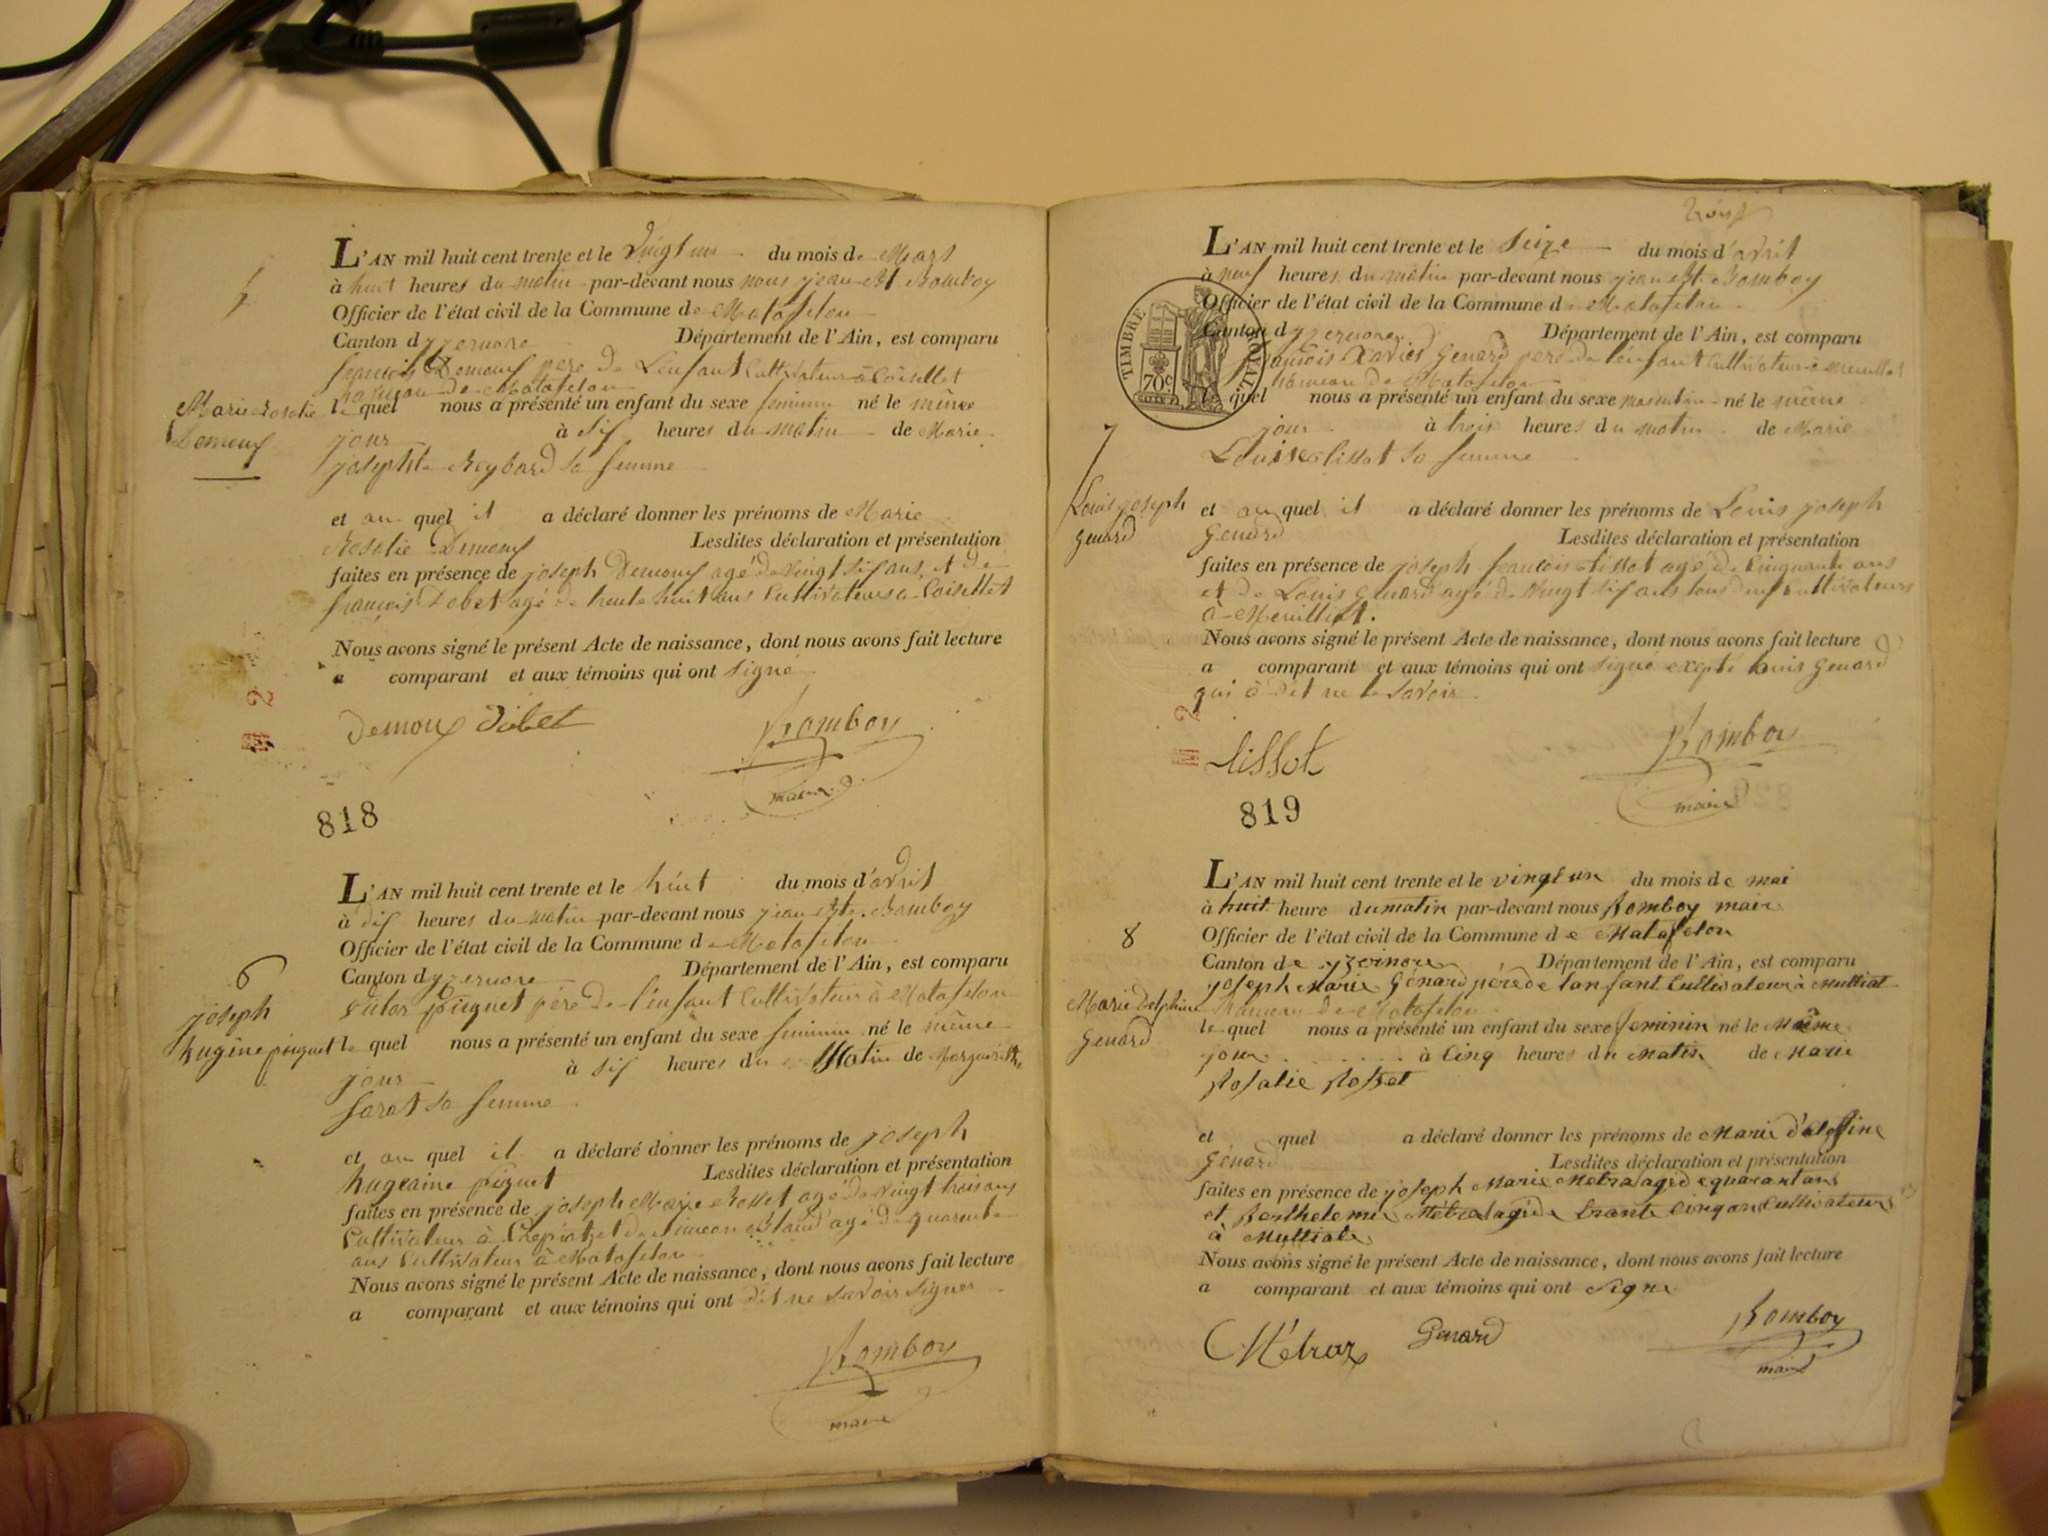 L'AN mil huit cent trente et le vingt un du mois de Mars
à huit heures du matin par-devant nous nous jean Bt Bomboy
Officier de l'état civil de la Commune de Matafelon
Canton d'yzernore Département de l'Ain, est comparu
françois Demoux père de L'enfant Cultivateur à Coisellet
hameau de Matafelon
Marie Rosalie
Demoux
le quel nous a présenté un enfant du sexe feminin né le même
jour à six heures du matin de Marie
josephte Reybard sa femme
et au quel il a déclaré donner les prénoms de Marie
Rosalie Demoux Lesdites déclaration et présentation
faites en présence de joseph Demoux agé de vingt six ans et de
françois Dobet agé de trente huit ans Cultivateurs à Coisellet
Nous avons signé le présent Acte de naissance, dont nous avons fait lecture
a comparant et aux témoins qui ont signé
Demoux Bomboy
maire
818
L'AN mil huit cent trente et le huit du mois d'avril
à dix heures du matin par-devant nous jean Bte Bomboy
Officier de l'état civil de la Commune de Matafelon
6
Canton d'yzernore Département de l'Ain, est comparu
piquet père de l'enfant Cultivateur à Matafelon
joseph
hugène piquet
le quel nous a présenté un enfant du sexe feminin né le même
jour à six heures du Matin de Marguerite
sa femme
et au quel il a déclaré donner les prénoms de joseph
hugeaine piquet Lesdites déclaration et présentation
faites en présence de joseph Marie Rosset agé de vingt trois ans
Cultivateur à et de agé de quarente
ans Cultivateur à Matafelon
Nous avons signé le présent Acte de naissance, dont nous avons fait lecture
a comparant et aux témoins qui ont dit ne savoir signer
Bomboy
maire
L'AN mil huit cent trente et le seize du mois d'avril
à neuf heures du matin par-devant nous jean Bt Bomboy
Officier de l'état civil de la Commune de Matafelon
Canton d'yzernore Département de l'Ain, est comparu
TIMBRE ROYAL
70c
françois Xavier Genard père de l'enfant Cultivateur à
hameau de Matafelon
le quel nous a présenté un enfant du sexe masculin né le même
7
jour à trois heures du matin de Marie
Louise tissot sa femme
Louis joseph
genard
et au quel il a déclaré donner les prénoms de Louis joseph
Genard Lesdites déclaration et présentation
faites en présence de joseph françois tissot agé de Cinquante ans
et de Louis Genard agé de vingt six ans tous deux Cultivateurs
Nous avons signé le présent Acte de naissance, dont nous avons fait lecture
a comparant et aux témoins qui ont signé exepté Louis Genard
qui a dit ne le savoir
tissot Bomboy
maire
819
L'AN mil huit cent trente et le vingt un du mois de mai
à huit heure du matin par-devant nous Bomboy maire
8
Officier de l'état civil de la Commune de Matafelon
Canton de yzernore Département de l'Ain, est comparu
joseph Marie Génard père de lanfant Cultivateur à Mulliat
Marie delphine
Genard
hameau de Matafelon
le quel nous a présenté un enfant du sexe feminin né le Même
jour à Cinq heures du Matin de Marie
Rosalie Rosset
et quel a déclaré donner les prénoms de Marie
Génard Lesdites déclaration et présentation
faites en présence de joseph Marie Metral agé de quarant ans
et Berthelemie Métral agé de trante Cinq ans Cultivateurs
à Mulliat
Nous avons signé le présent Acte de naissance, dont nous avons fait lecture
a comparant et aux témoins qui ont Signe
Métraz Genard Bomboy
maire